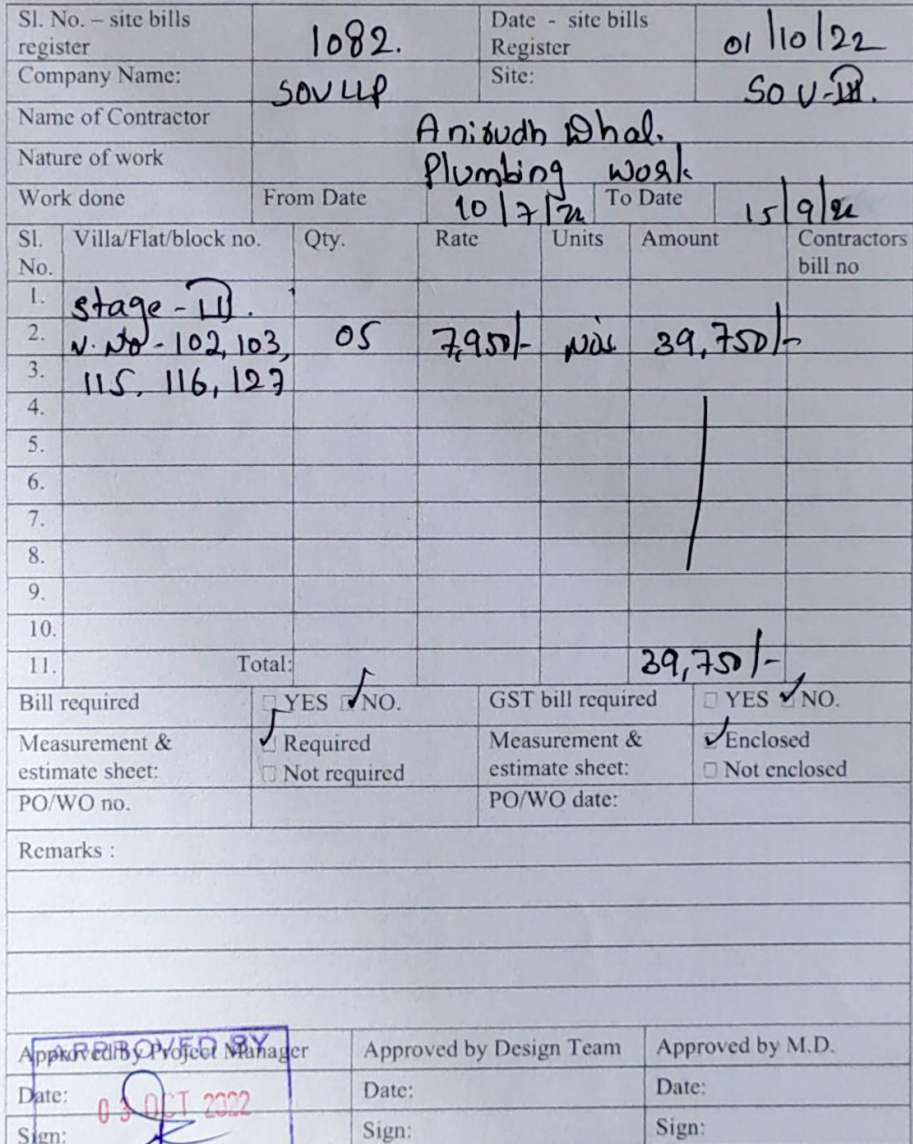 Sl. No. – site bills register 1082. Date - site bills Register 01/10/22
Company Name: SOV LLP Site: SOV-III.
Name of Contractor Anirudh Dhal.
Nature of work Plumbing work
Work done From Date 10/7/22 To Date 15/9/22
Sl. No. Villa/Flat/block no. Qty. Rate Units Amount Contractors bill no
1. stage - III.
2. V. No - 102, 103, 05 7,950/- Nos 39,750/-
3. 115, 116, 127
4.
5.
6.
7.
8.
9.
10.
11. Total: 39,750/-
Bill required YES NO. GST bill required YES NO.
Measurement & estimate sheet: Required Not required Measurement & estimate sheet: Enclosed Not enclosed
PO/WO no. PO/WO date:
Remarks :
APPROVED BY
Approved By Project Manager Approved by Design Team Approved by M.D.
Date: 03 OCT 2022 Date: Date:
Sign: Sign: Sign: